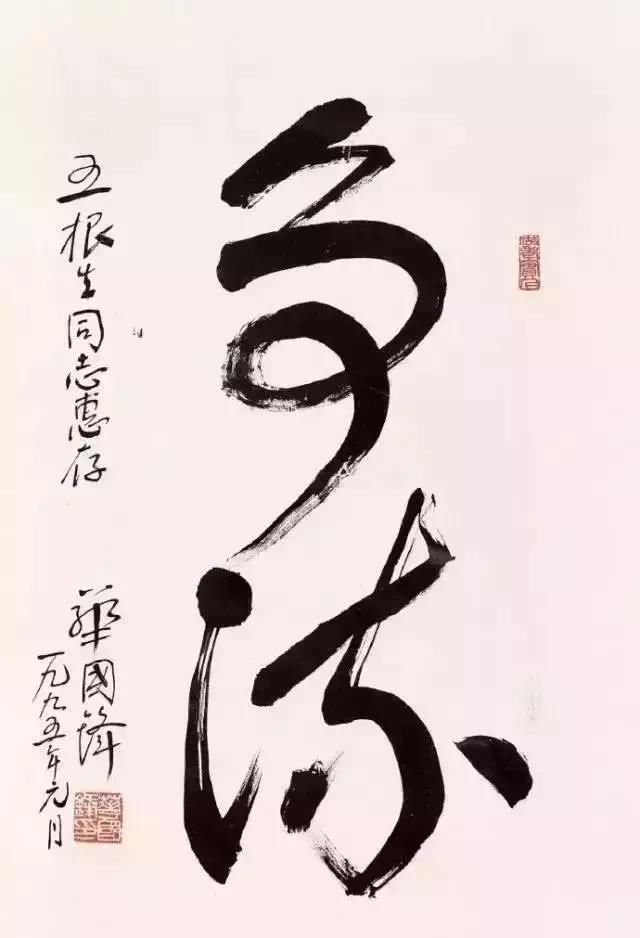 争流
王根生同志惠存
華國鋒
一九九五年元月